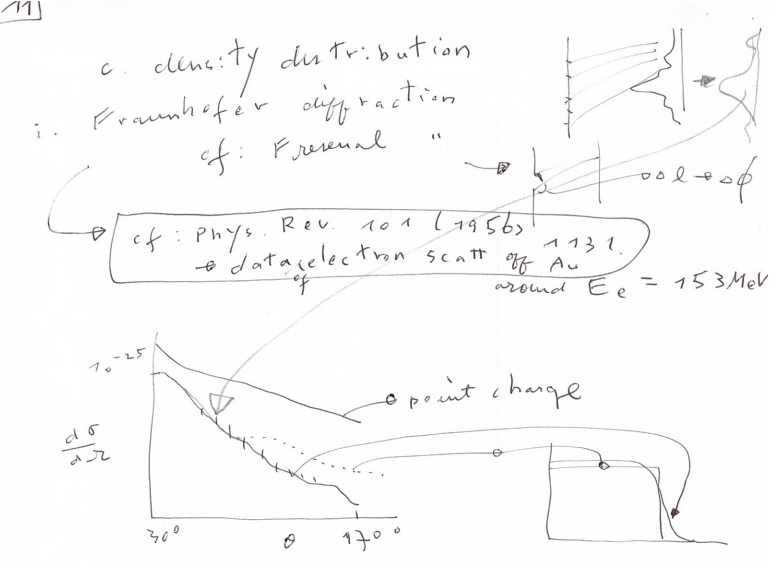 11
c. density distribution
i. Fraunhofer diffraction
cf: Fresenal "
∘∘l → ∘ϕ
cf: Phys. Rev. 101 (1956) 1131.
→ data of electron scatt off Au
around Ee = 153 MeV
10⁻²⁵
point charge
dσ/dΩ
30° θ 170°